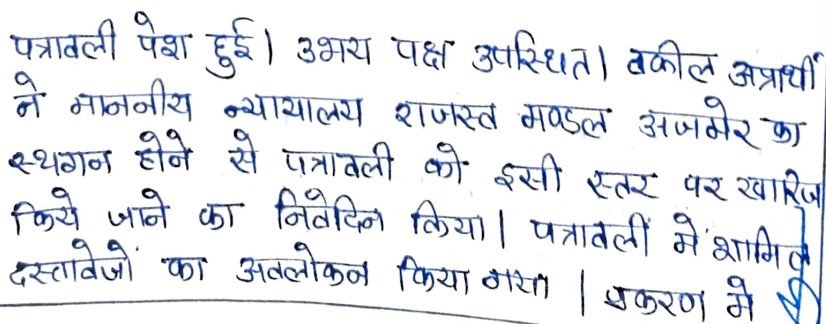 पत्रावली पेश हुई। उभय पक्ष उपस्थित। वकील अप्रार्थी
ने माननीय न्यायालय राजस्व मण्डल अजमेर का
स्थगन होने से पत्रावली को इसी स्तर पर खारिज
किये जाने का निवेदन किया। पत्रावली में शामिल
दस्तावेजों का अवलोकन किया गया। प्रकरण में